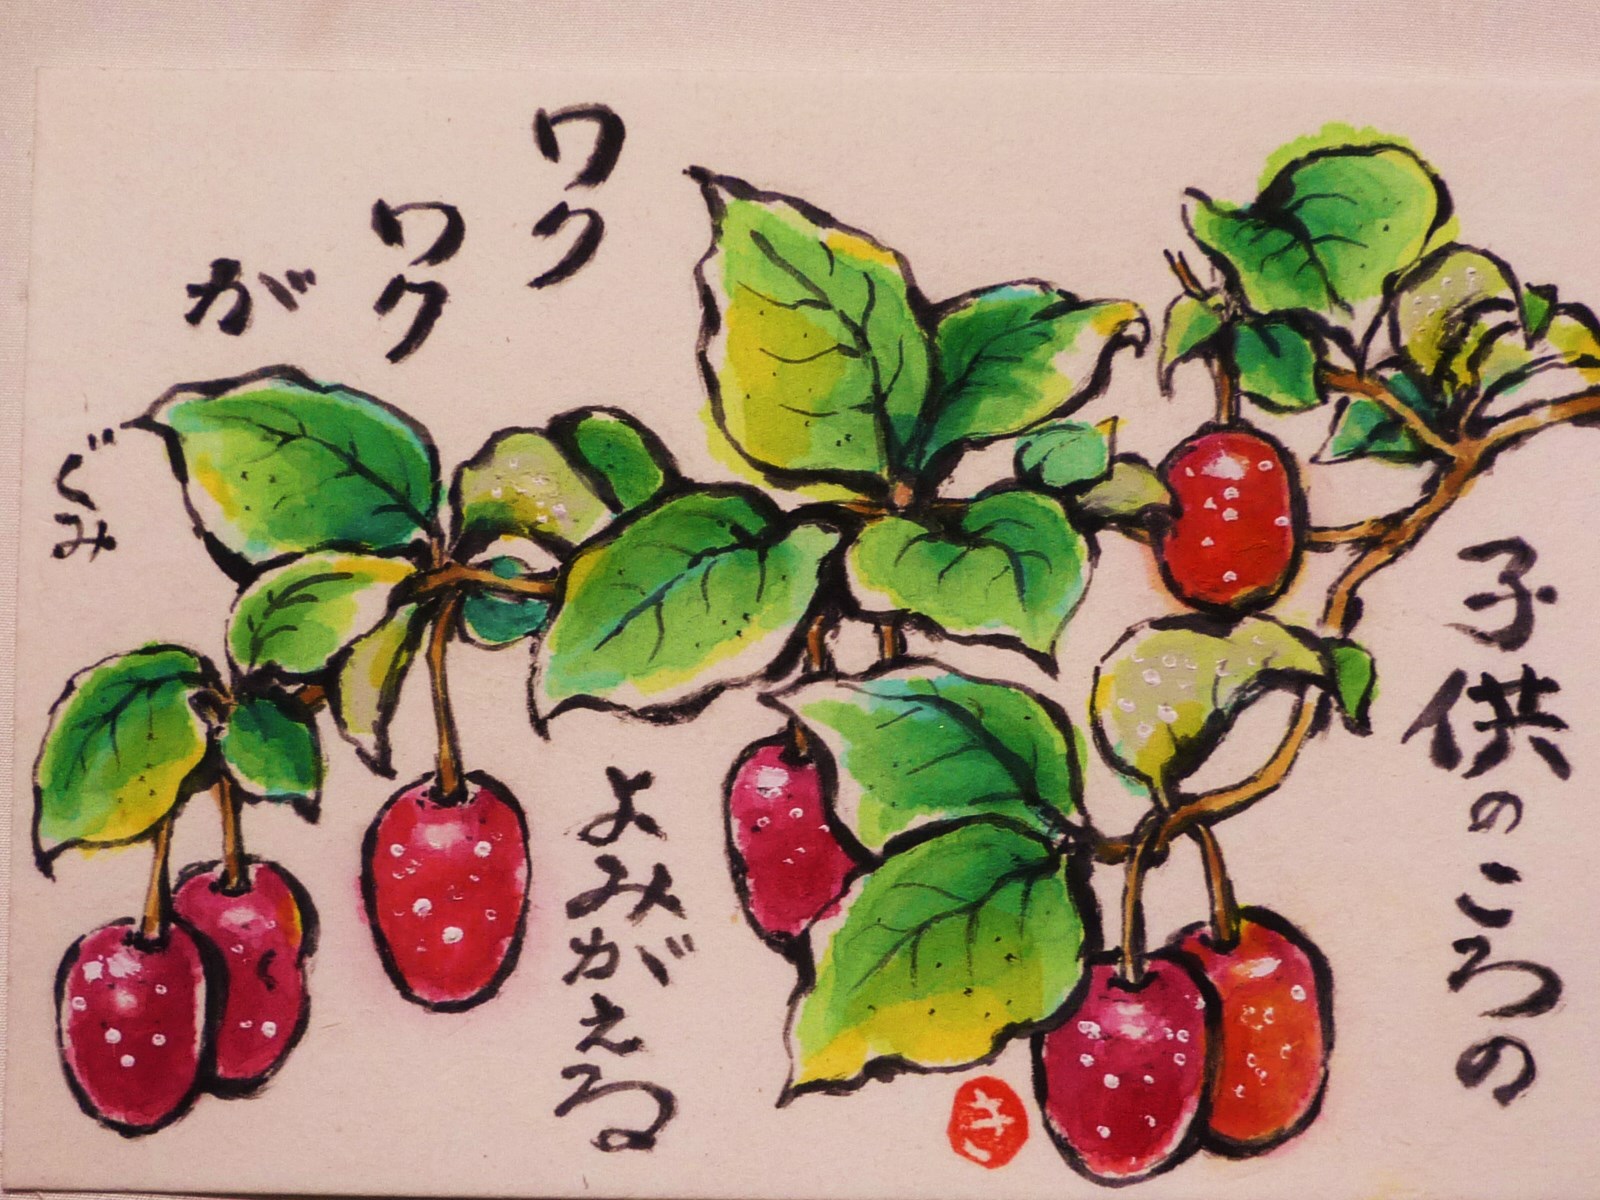 子供のころの
ワク
ワク
が
よみがえる
ぐみ
き